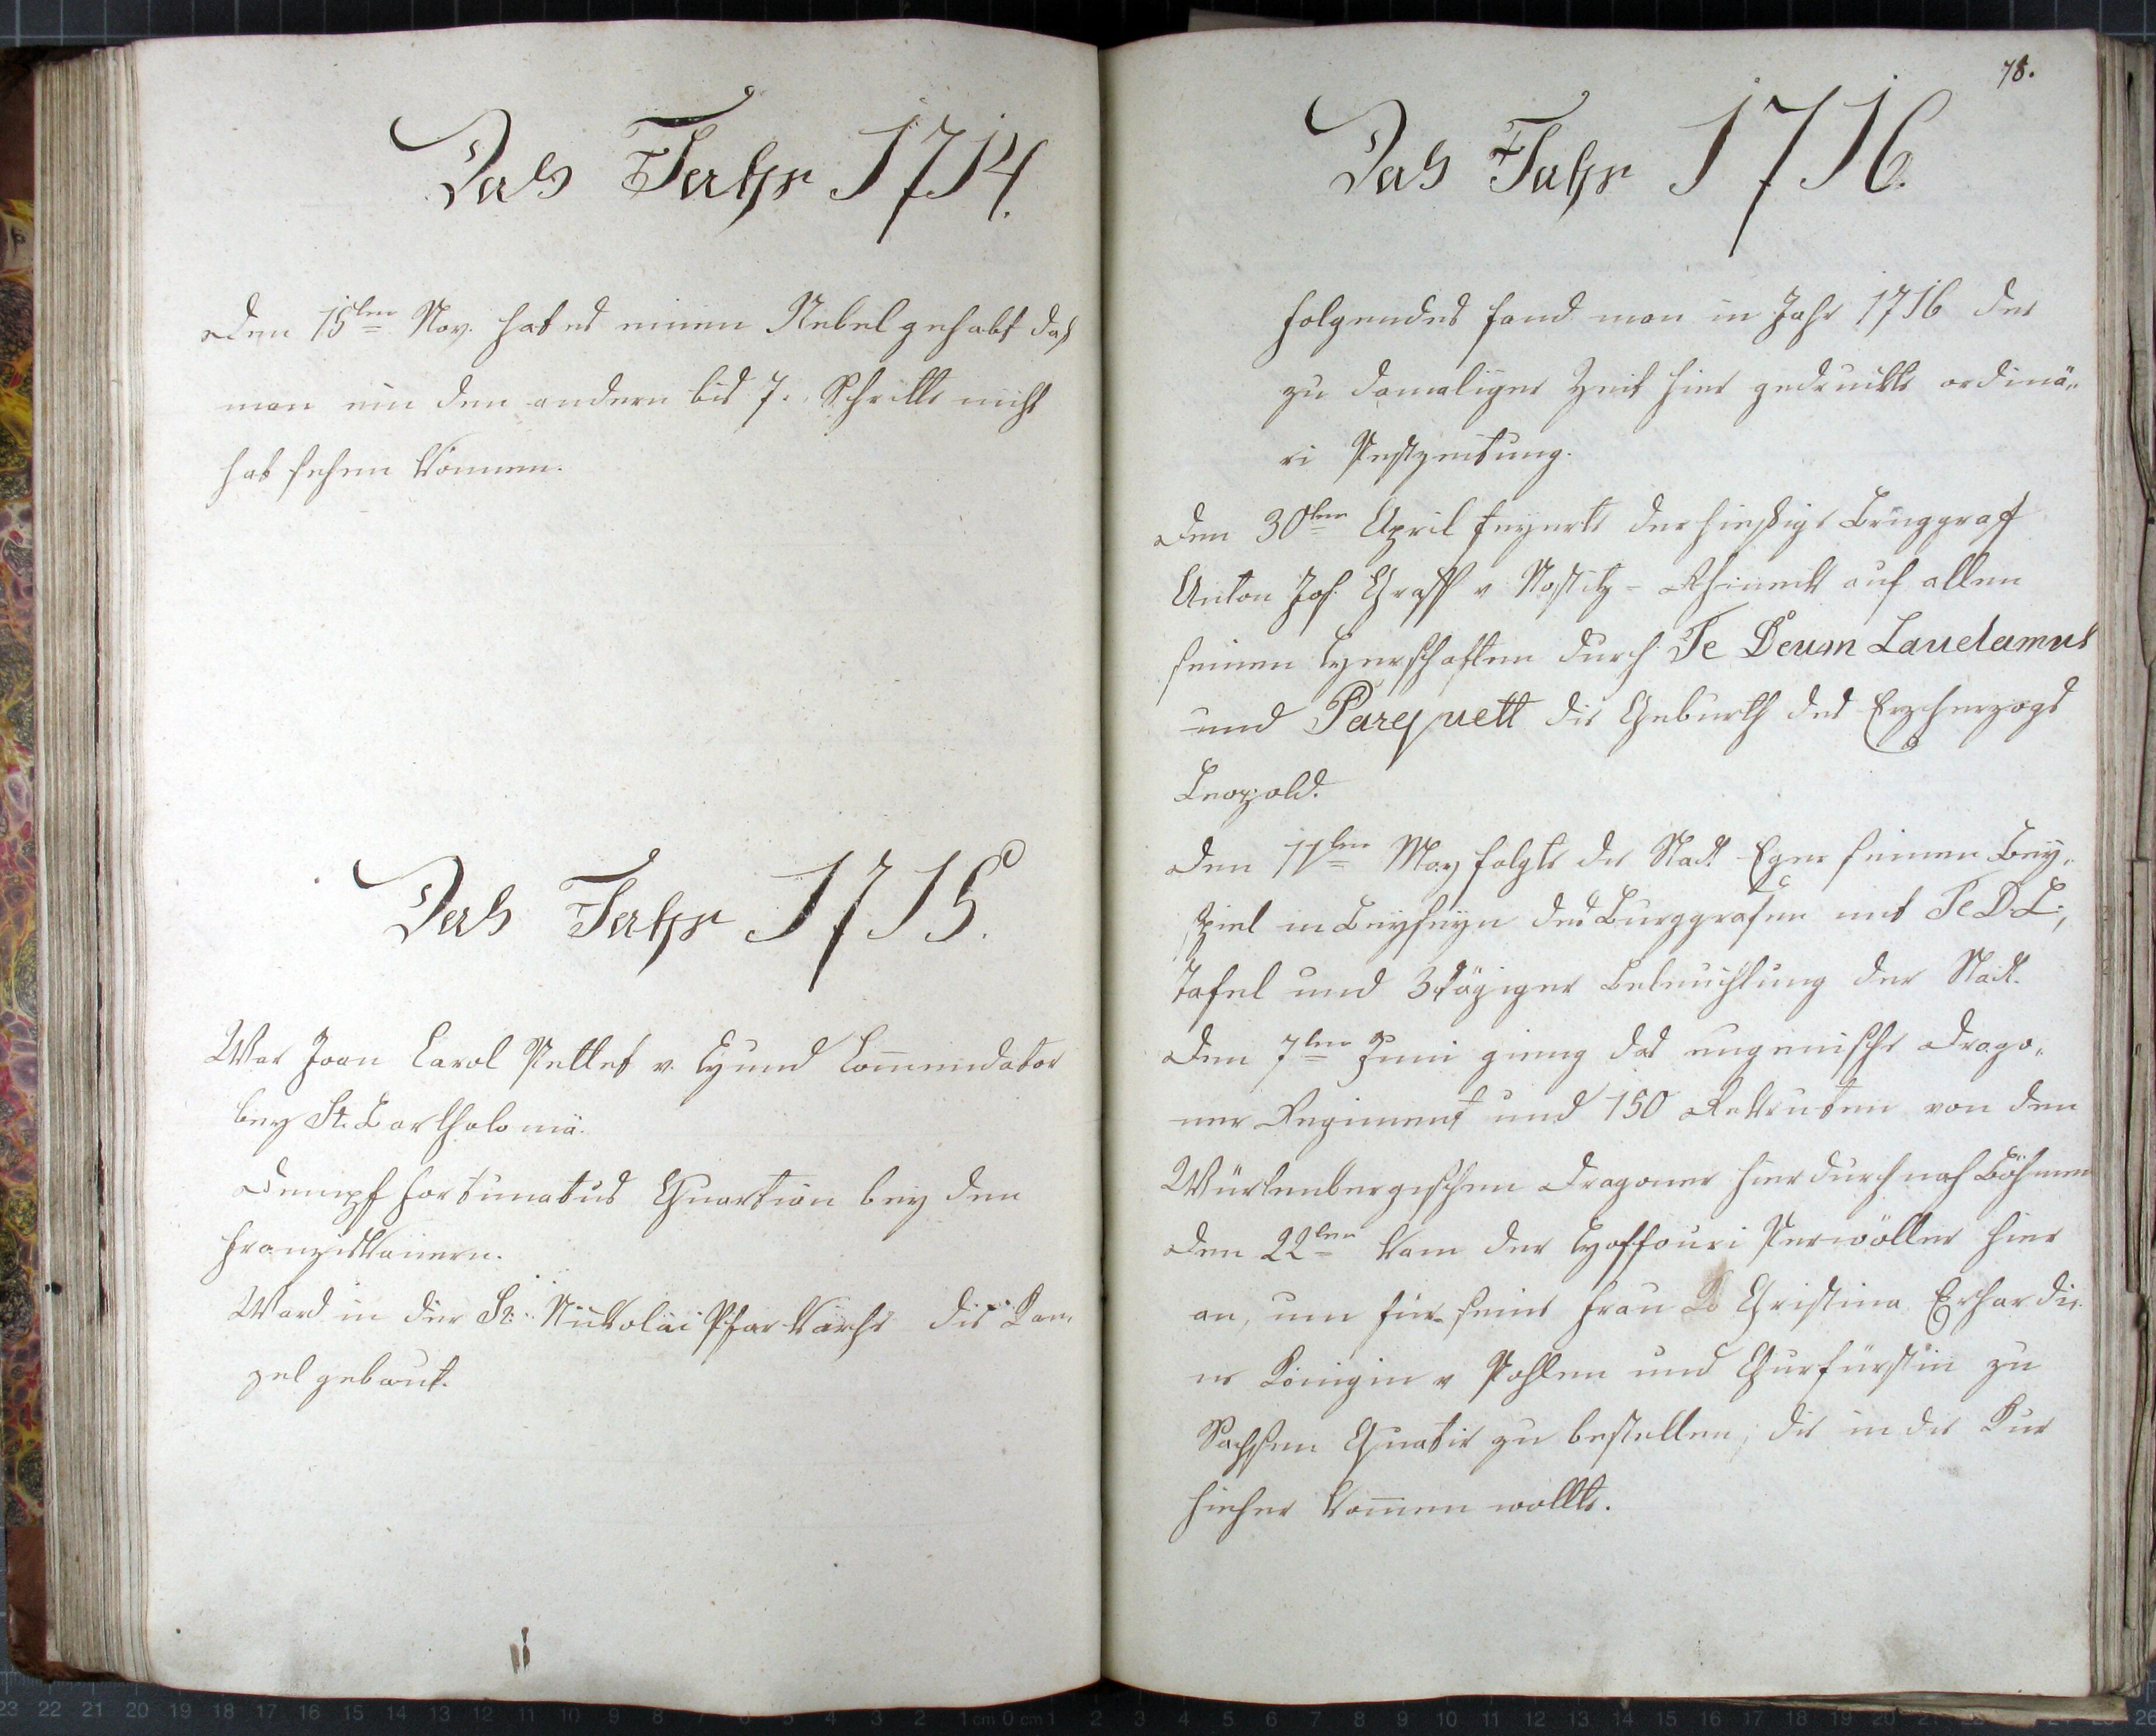 Das Jahr 1714.
Den 15ten Nov. hat es einen Nebel gehabt daß
man ein den andern bis 7. Schritte nicht
hat sehen können.
Das Jahr 1715.
War Joan Carol Pettet v. Hund Com̄endator
bey St. Bartholomä.
Dempf Fortunatus Quartion bey den
Franziskanern.
Ward in der St: Nickolai Pfarkirche die Kan„
zel gebaut.
78.
Das Jahr 1716.
Folgendes fand man in Jahr 1716 der
zu damaliger Zeit hier gedruckte ordinä„
ri Postzeitung.
Den 30ten April feyerte der hießige Burggraf
Anton Jos. Graff v Nostitz-Rhineck auf allen
seinen Herschaften durch Te Deum Laudamus
und Parquett die Geburth des Erzherzogs
Leopold.
Den 11ten May folgte die Stadt Eger seinen Bey„
spiel in Beyseyn des Burggrafen mit Te D L:,
Tafel und 3tägiger Beleuchtung der Stadt.
Den 7ten Juni gieng das eugenische Drago„
ner Regiment und 150 Rekruten von den
Würtenbergischen Dragoner hier durch nach Böhmen
Den 22ten kam der Hoffouri Perwöller hier
an, um für seine Frau Christina Erhardi„
ne Königin v Pohlen und Churfürstin zu
Sachsen Quatir zu bestellen, die in die Kur
hieher kom̄en wollte.